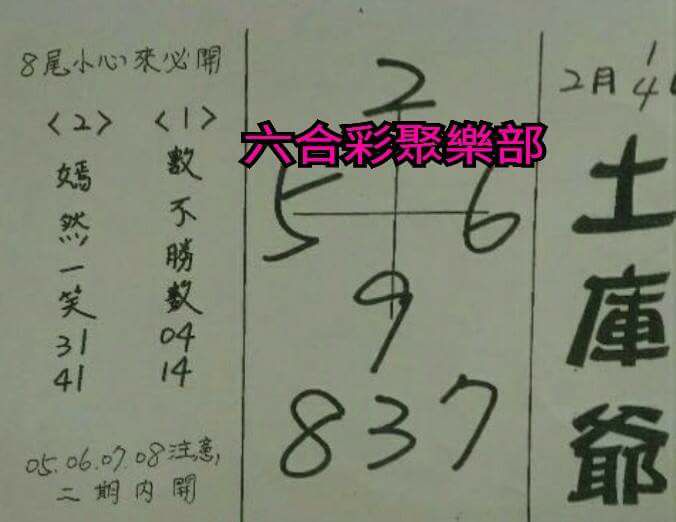 2月14
土庫爺
六合彩聚樂部
2
5 6
9
837
8尾小心來必開
<1>
數不勝數
04
14
<2>
嫣然一笑
31
41
05.06.07.08注意,
二期內開